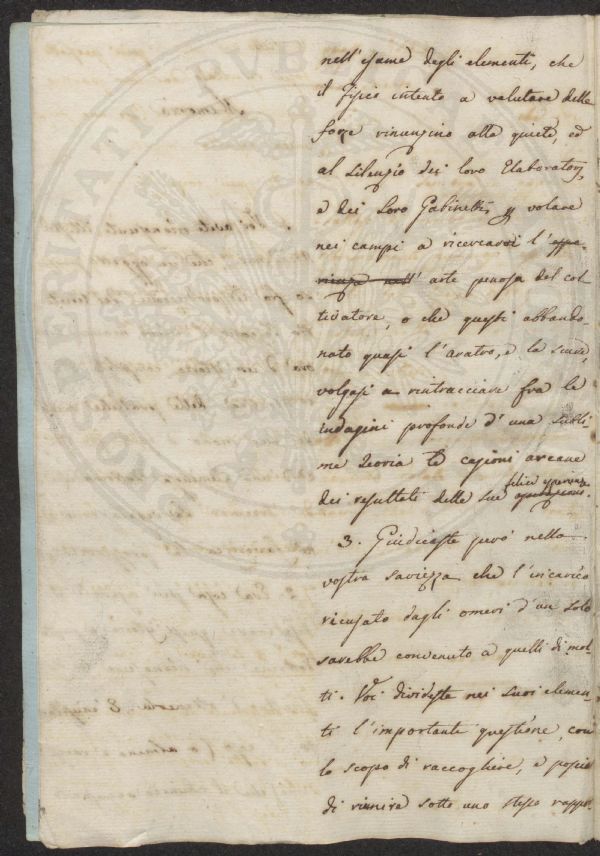 nell'esame degli elementi, che
il Fisico intento a valutare delle
forze rinunzino alla quiete, ed
al silenzio dei loro Elaboratorj
e dei loro Gabinetti, volare
nei campi a ricercarvi l'espe
rienza nell' arte penosa del col
tivatore, o che questi abbando
nato quasi l'aratro, e la scure
volgasi a rintracciare fra le
indagini profonde d'una subli-
me Teoria le cagioni arcane
felici esperienze
dei resultati delle sue operazioni.
3. Giudicaste però nella
vostra saviezza che l'incarico
ricusato dagli omeri d'un solo
sarebbe convenuto a quelli di mol-
ti. Voi divideste nei suoi elemen-
ti l'importante questione, con
lo scopo di raccogliere, e poscia
di riunire sotto uno stesso rappor-